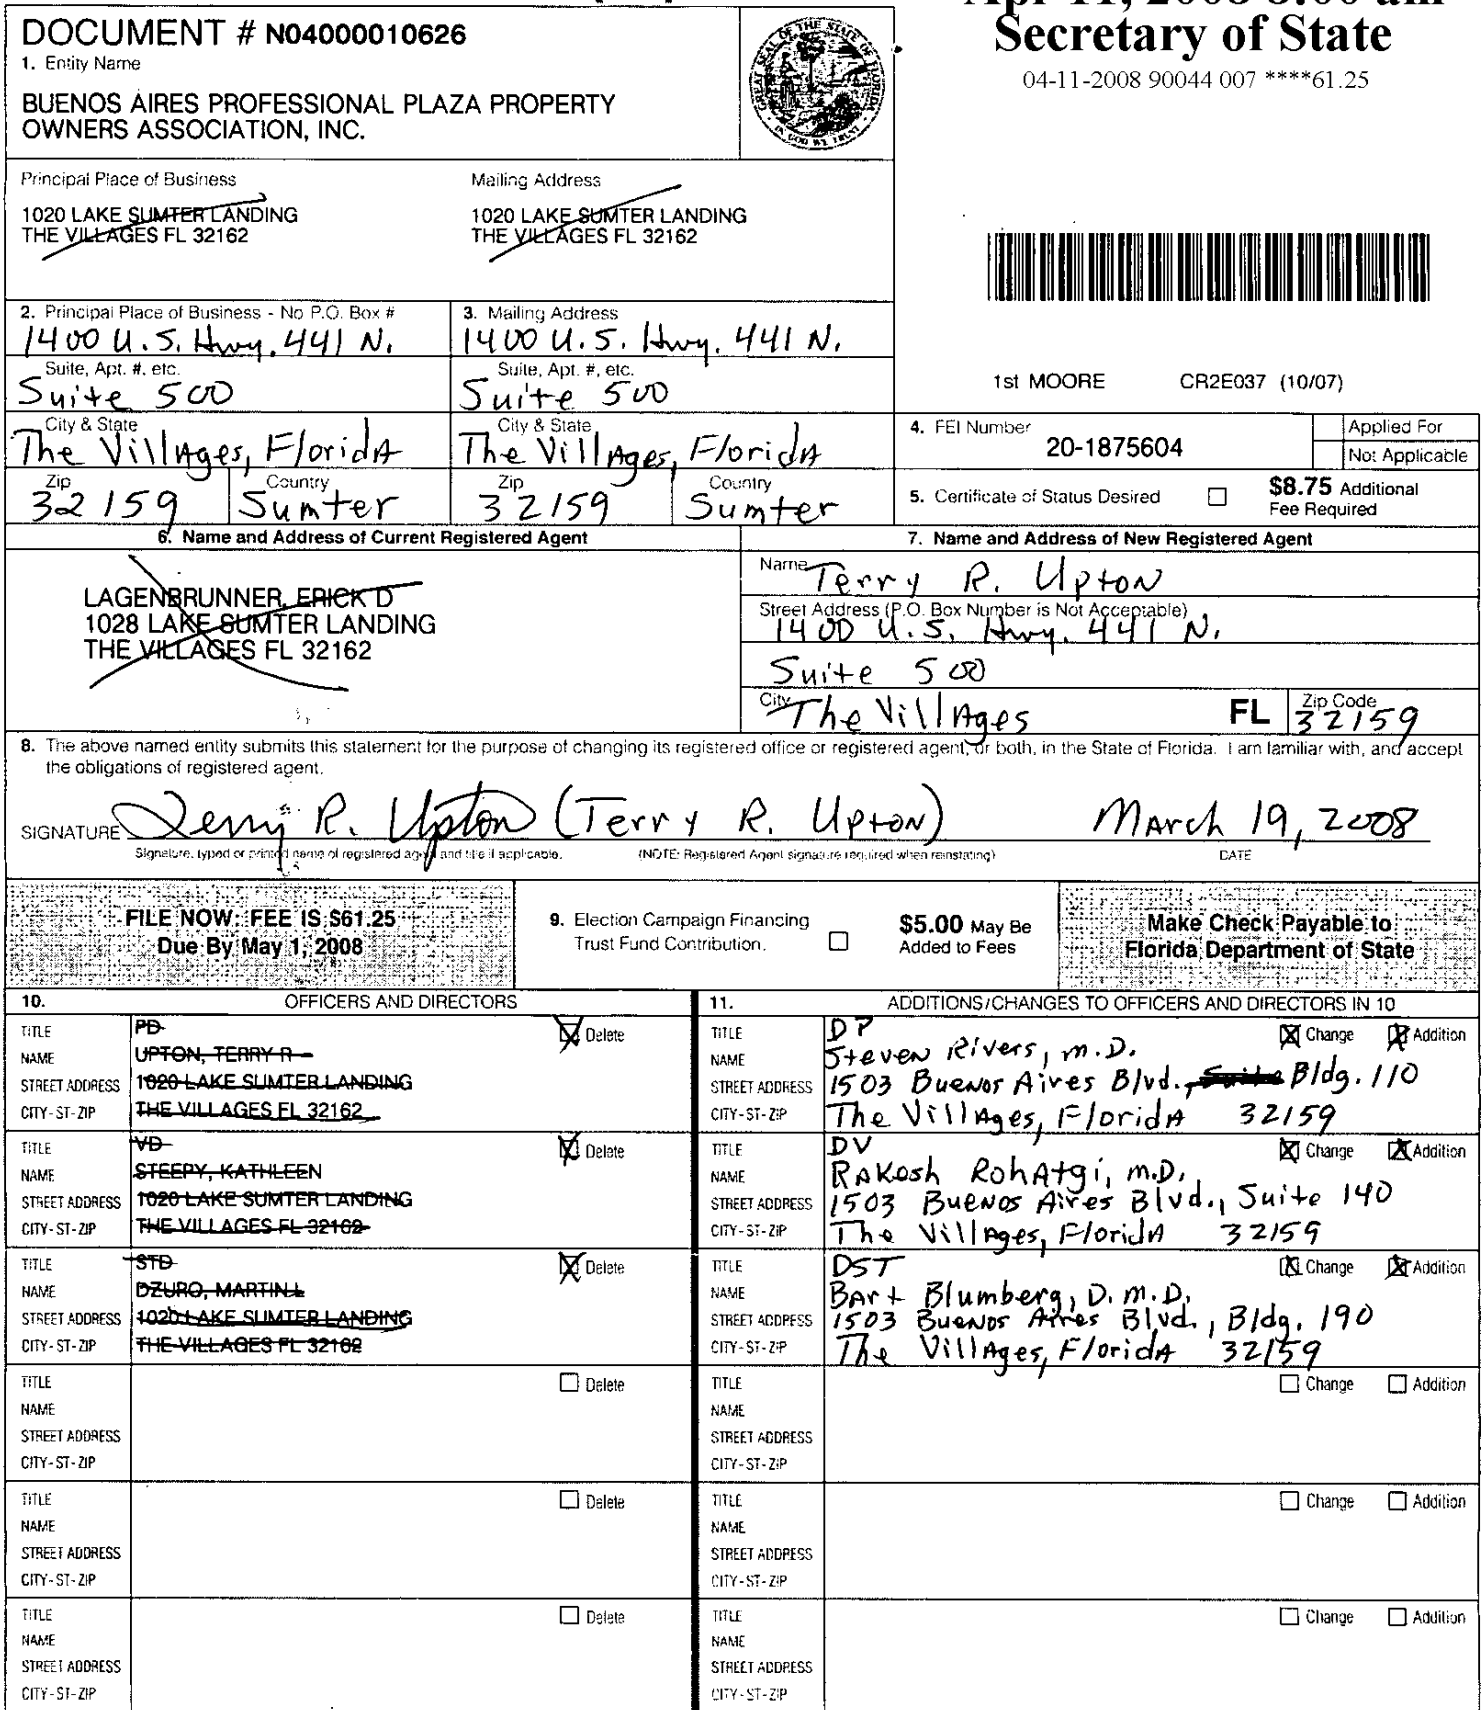 Secretary of State
04-11-2008 90044 007 ****61.25
DOCUMENT # N04000010626
1. Entity Name
BUENOS AIRES PROFESSIONAL PLAZA PROPERTY
OWNERS ASSOCIATION, INC.
Principal Place of Business
1020 LAKE SUMTER LANDING
THE VILLAGES FL 32162
Mailing Address
1020 LAKE SUMTER LANDING
THE VILLAGES FL 32162
1st MOORE CR2E037 (10/07)
2. Principal Place of Business - No P.O. Box #
1400 U.S. Hwy. 441 N.
Suite, Apt. #, etc.
Suite 500
City & State
The Villages, Florida
Zip Country
32159 Sumter
3. Mailing Address
1400 U.S. Hwy. 441 N.
Suite, Apt. #, etc.
Suite 500
City & State
The Villages, Florida
Zip Country
32159 Sumter
4. FEI Number 20-1875604 Applied For
Not Applicable
5. Certificate of Status Desired $8.75 Additional
Fee Required
6. Name and Address of Current Registered Agent
LAGENBRUNNER, ERICK D
1028 LAKE SUMTER LANDING
THE VILLAGES FL 32162
7. Name and Address of New Registered Agent
Name Terry R. Upton
Street Address (P.O. Box Number is Not Acceptable)
1400 U.S. Hwy. 441 N.
Suite 500
City The Villages FL Zip Code 32159
8. The above named entity submits this statement for the purpose of changing its registered office or registered agent, or both, in the State of Florida. I am familiar with, and accept
the obligations of registered agent.
SIGNATURE Terry R. Upton (Terry R. Upton) March 19, 2008
Signature, typed or printed name of registered agent and title if applicable. (NOTE: Registered Agent signature required when reinstating) DATE
FILE NOW: FEE IS $61.25
Due By May 1, 2008
9. Election Campaign Financing
Trust Fund Contribution.
$5.00 May Be
Added to Fees
Make Check Payable to
Florida Department of State
10. OFFICERS AND DIRECTORS
TITLE PD Delete
NAME UPTON, TERRY R
STREET ADDRESS 1020 LAKE SUMTER LANDING
CITY-ST-ZIP THE VILLAGES FL 32162
TITLE VD Delete
NAME STEEPY, KATHLEEN
STREET ADDRESS 1020 LAKE SUMTER LANDING
CITY-ST-ZIP THE VILLAGES FL 32162
TITLE STD Delete
NAME DZURO, MARTIN L
STREET ADDRESS 1020 LAKE SUMTER LANDING
CITY-ST-ZIP THE VILLAGES FL 32162
TITLE Delete
NAME
STREET ADDRESS
CITY-ST-ZIP
TITLE Delete
NAME
STREET ADDRESS
CITY-ST-ZIP
TITLE Delete
NAME
STREET ADDRESS
CITY-ST-ZIP
11. ADDITIONS/CHANGES TO OFFICERS AND DIRECTORS IN 10
TITLE DP Change Addition
NAME Steven Rivers, M.D.
STREET ADDRESS 1503 Buenos Aires Blvd., Suite Bldg. 110
CITY-ST-ZIP The Villages, Florida 32159
TITLE DV Change Addition
NAME Rakesh Rohatgi, M.D.
STREET ADDRESS 1503 Buenos Aires Blvd., Suite 140
CITY-ST-ZIP The Villages, Florida 32159
TITLE DST Change Addition
NAME Bart Blumberg, D.M.D.
STREET ADDRESS 1503 Buenos Aires Blvd., Bldg. 190
CITY-ST-ZIP The Villages, Florida 32159
TITLE Change Addition
NAME
STREET ADDRESS
CITY-ST-ZIP
TITLE Change Addition
NAME
STREET ADDRESS
CITY-ST-ZIP
TITLE Change Addition
NAME
STREET ADDRESS
CITY-ST-ZIP